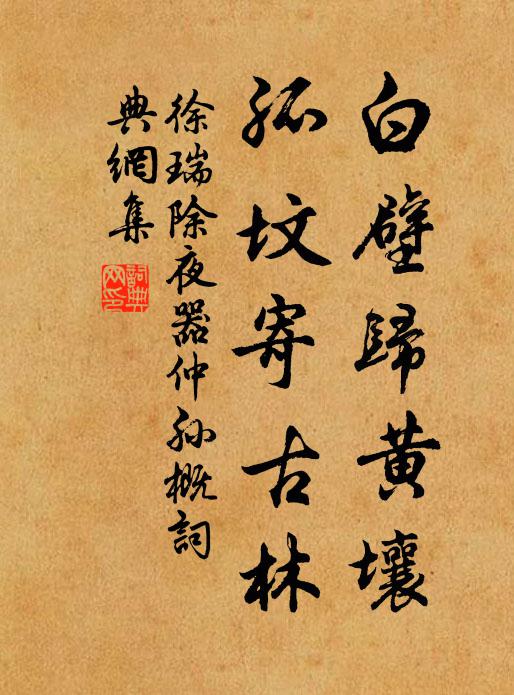 白璧歸黄壤
孤坟寄古林
徐瑞除夜器仲孙概詞
典網集
詞典
网印